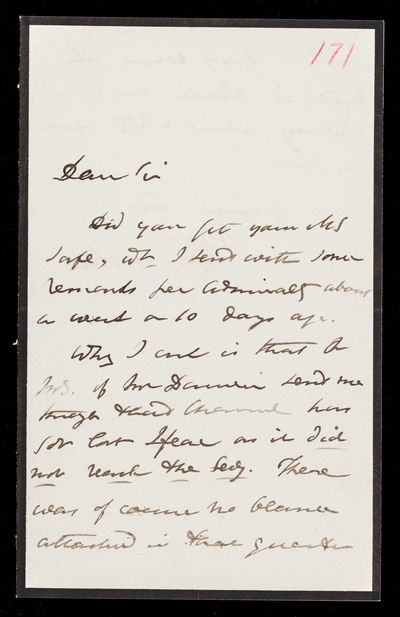 171
Dear Sir
Did you get your MS
safe, wh I send with some
remarks per Admiralty about
a week or 10 days ago.
Why I ask is that
MS. of Mr Darwin send me
through that Channel has
got lost I fear as it did
not reach the Secy. There
was of course no blame
attached in that quarter